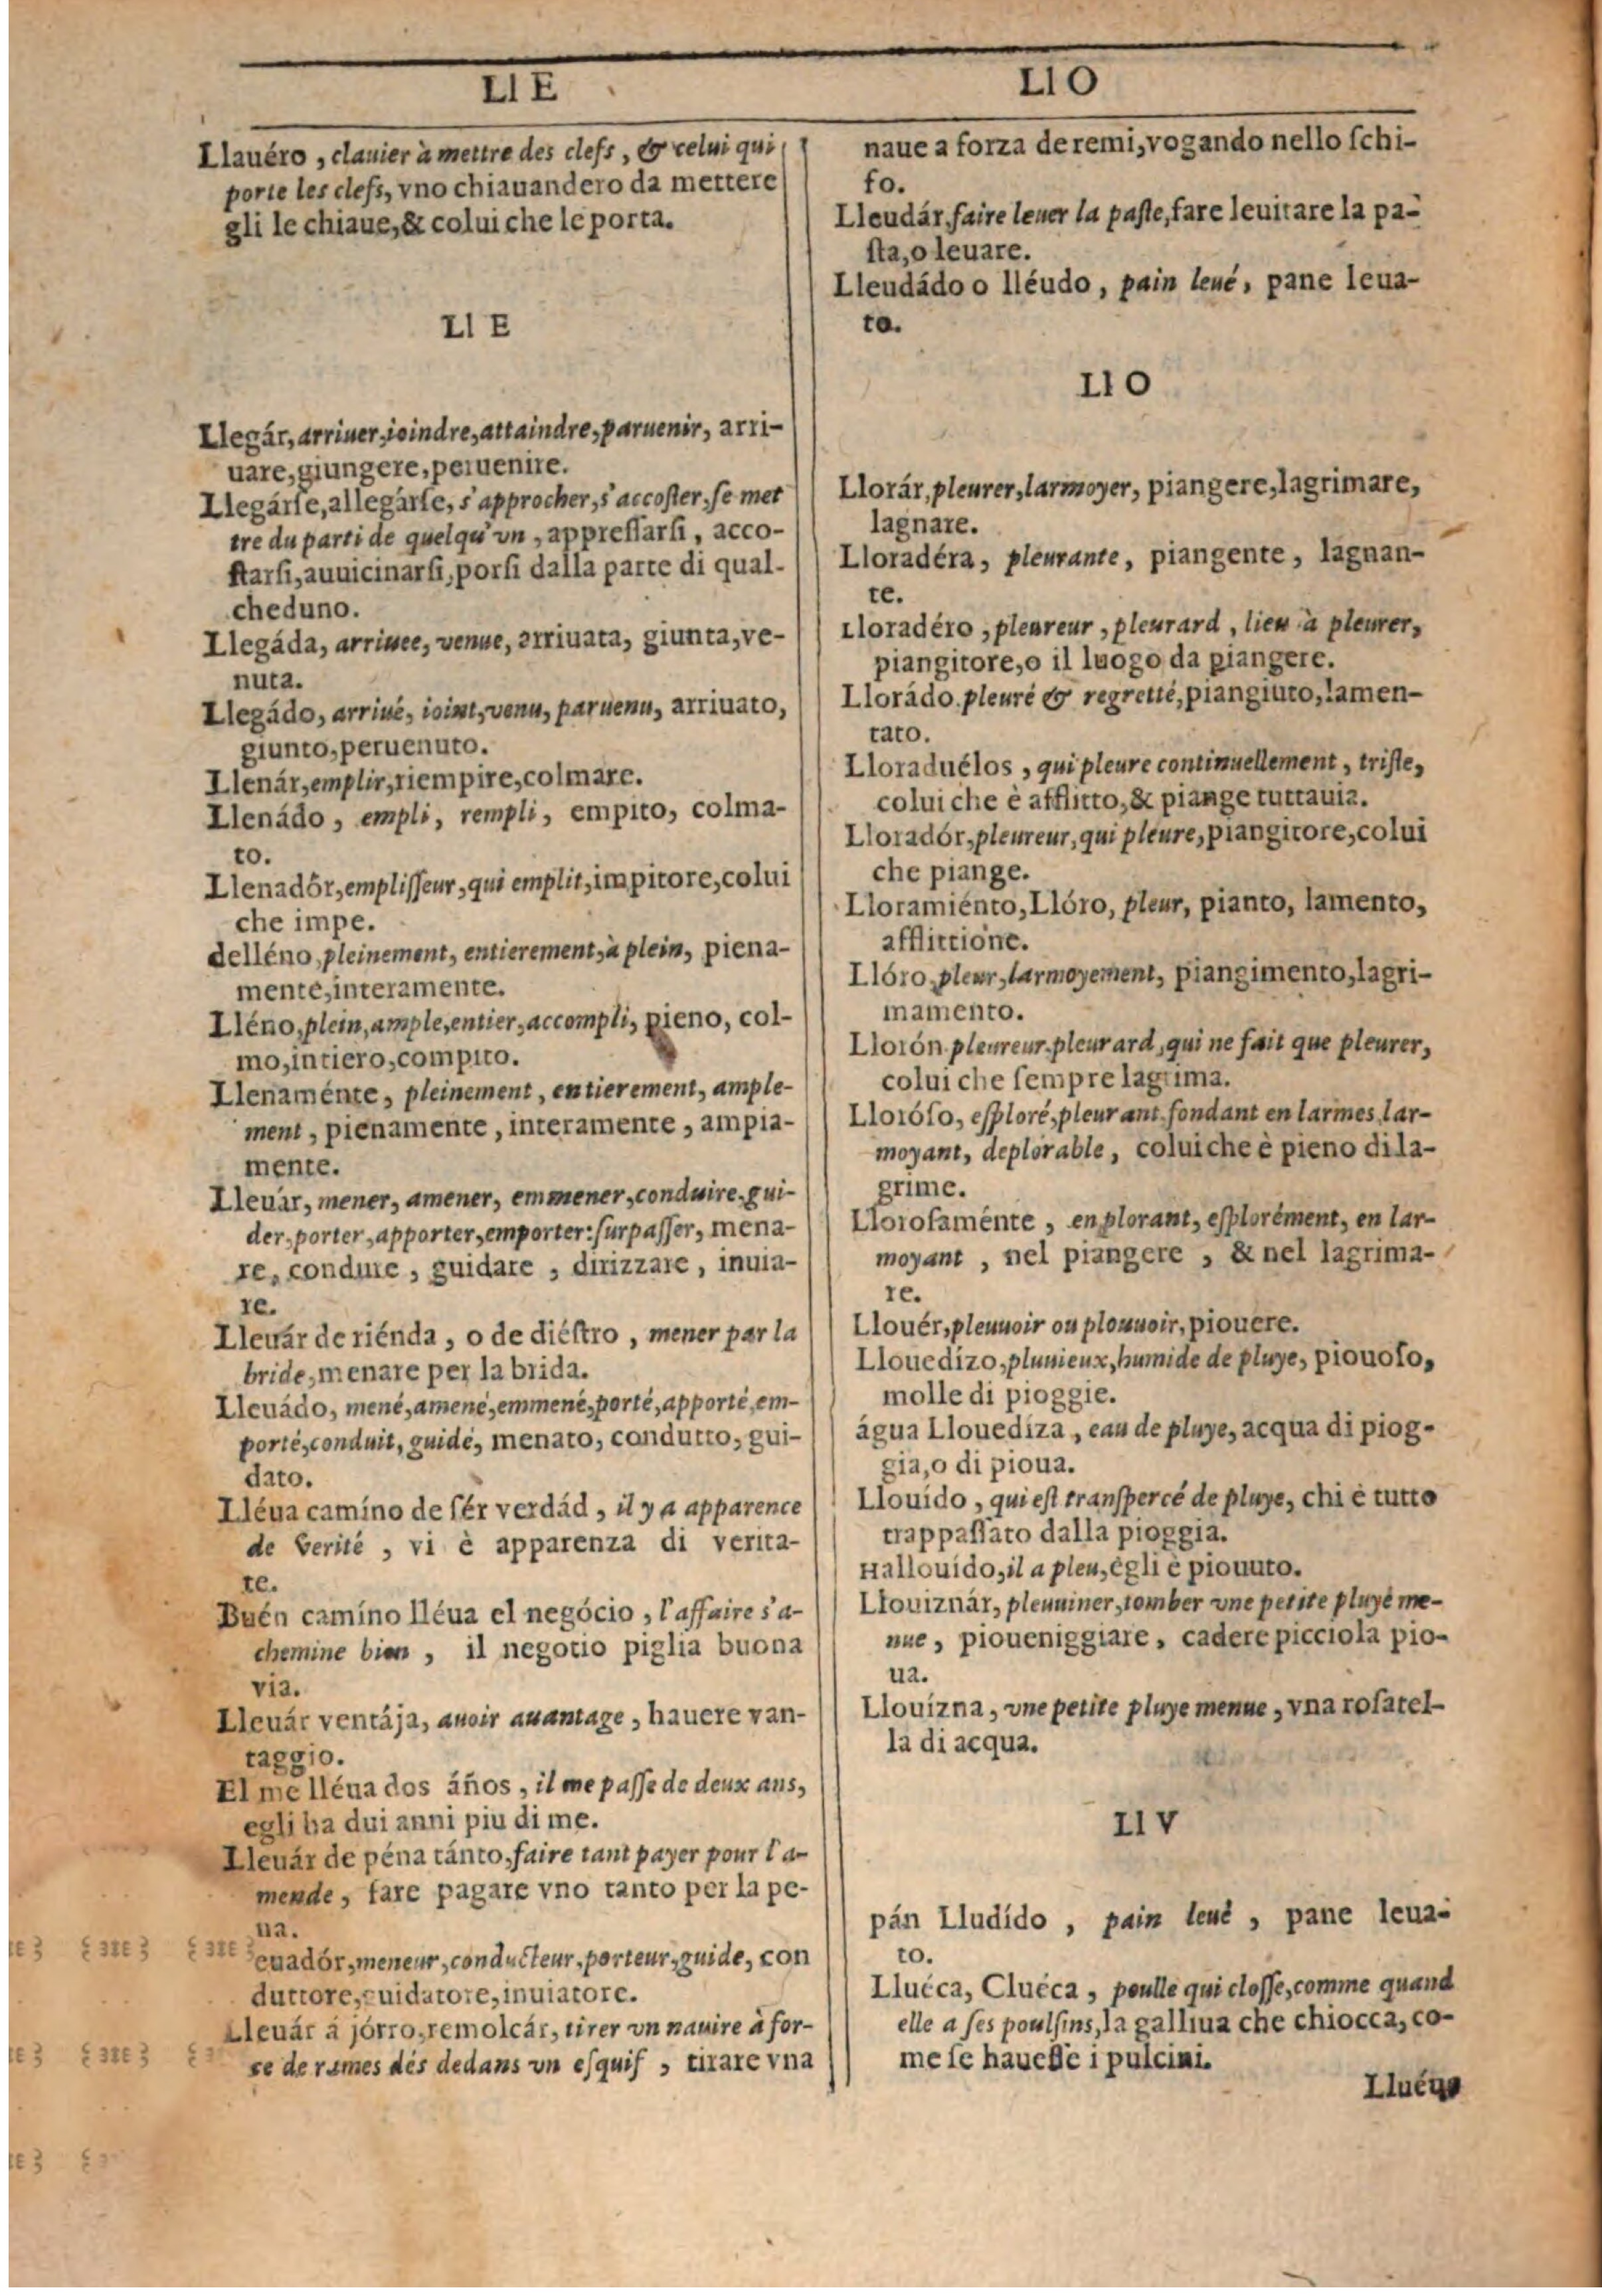 Ll E
Llauéro, clauier à mettre des clefs, & celui qui
porte les clefs, vno chiauandero da mettere
gli le chiaue, & colui che le porta.
Ll E
Llegár, arriuer, ioindre, attaindre, paruenir, arri-
uare, giungere, peruenire.
Llegárſe, allegárſe, s'approcher, s'accoſter, ſe met
tre du parti de quelqu'vn, appreſſarſi, acco-
ſtarſi, auuicinarſi, porſi dalla parte di qual-
cheduno.
Llegáda, arriuee, venue, arriuata, giunta, ve-
nuta.
Llegádo, arriué, ioint, venu, paruenu, arriuato,
giunto, peruenuto.
Llenár, emplir, riempire, colmare.
Llenádo, empli, rempli, empito, colma-
to.
Llenadôr, empliſſeur, qui emplit, impitore, colui
che impe.
delléno, pleinement, entierement, à plein, piena-
mente, interamente.
Lléno, plein, ample, entier, accompli, pieno, col-
mo, intiero, compito.
Llenaménte, pleinement, entierement, ample-
ment, pienamente, interamente, ampia-
mente.
Lleuár, mener, amener, emmener, conduire, gui-
der, porter, apporter, emporter: ſurpaſſer, mena-
re, condure, guidare, dirizzare, inuia-
re.
Lleuár de riénda, o de diéſtro, mener par la
bride, menare per la brida.
Lleuádo, mené, amené, emmené, porté, apporté, em-
porté, conduit, guidé, menato, condutto, gui-
dato.
Lléua camíno de ſér verdád, il y a apparence
de verité, vi è apparenza di verita-
te.
Buén camíno lléua el negócio, l'affaire s'a-
chemine bien, il negotio piglia buona
via.
Lleuár ventája, auoir auantage, hauere van-
taggio.
El me lléua dos áños, il me paſſe de deux ans,
egli ha dui anni piu di me.
Lleuár de péna tánto, faire tant payer pour l'a-
mende, fare pagare vno tanto per la pe-
na.
euadór, meneur, conducteur, porteur, guide, con
duttore, guidatore, inuiatore.
Lleuár á jórro, remolcár, tirer vn nauire à for-
ce de rames dés dedans vn eſquif, tirare vna
Ll O
naue a forza de remi, vogando nello ſchi-
fo.
Lleudár, faire leuer la paſte, fare leuitare la pa-
ſta, o leuare.
Lleudádo o lléudo, pain leué, pane leua-
to.
Ll O
Llorár, pleurer, larmoyer, piangere, lagrimare,
lagnare.
Lloradéra, pleurante, piangente, lagnan-
te.
Lloradéro, pleureur, pleurard, lieu à pleurer,
piangitore, o il luogo da piangere.
Llorádo. pleuré & regretté, piangiuto, lamen-
tato.
Lloraduélos, qui pleure continuellement, triſte,
colui che è afflitto, & piange tuttauia.
Lloradór, pleureur, qui pleure, piangitore, colui
che piange.
Lloramiénto, Llóro, pleur, pianto, lamento,
afflittione.
Llóro, pleur, larmoyement, piangimento, lagri-
mamento.
Llorón pleureur, pleurard, qui ne fait que pleurer,
colui che ſempre lagrima.
Lloróſo, eſploré, pleurant, fondant en larmes, lar-
moyant, deplorable, colui che è pieno di la-
grime.
Lloroſaménte, en plorant, eſplorément, en lar-
moyant, nel piangere, & nel lagrima-
re.
Llouér, pleuuoir ou plouuoir, piouere.
Llouedízo, pluuieux, humide de pluye, piouoſo,
molle di pioggie.
água Llouedíza, eau de pluye, acqua di piog-
gia, o di pioua.
Llouído, qui eſt tranſpercé de pluye, chi è tutto
trappaſſato dalla pioggia.
Hallouído, il a pleu, egli è piouuto.
Llouiznár, pleuuiner, tomber vne petite pluye me-
nue, pioueniggiare, cadere picciola pio-
ua.
Llouízna, vne petite pluye menue, vna roſatel-
la di acqua.
Ll V
pán Lludído, pain leué, pane leua-
to.
Lluéca, Cluéca, poulle qui cloſſe, comme quand
elle a ſes poulſins, la gallina che chiocca, co-
me ſe haueſſe i pulcini.